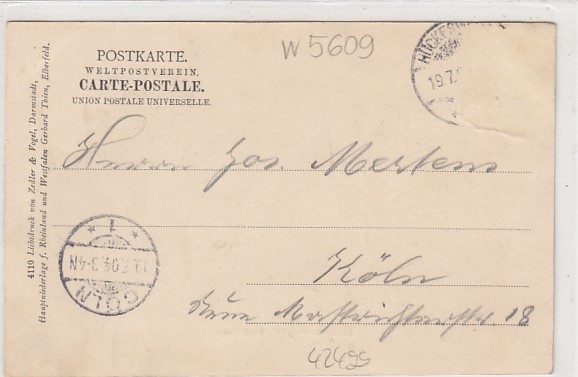 W 5609
POSTKARTE.
WELTPOSTVEREIN.
CARTE-POSTALE.
UNION POSTALE UNIVERSELLE.
19.7.
Herrn Jos. Mertens
Köln
Neue Mastrichterstr. 18
42499
CÖLN
* 1 *
19.7.04.3-4N
4110 Lichtdruck von Zedler & Vogel, Darmstadt,
Hauptniederlage f. Rheinland und Westfalen Gerhard Thien, Elberfeld.